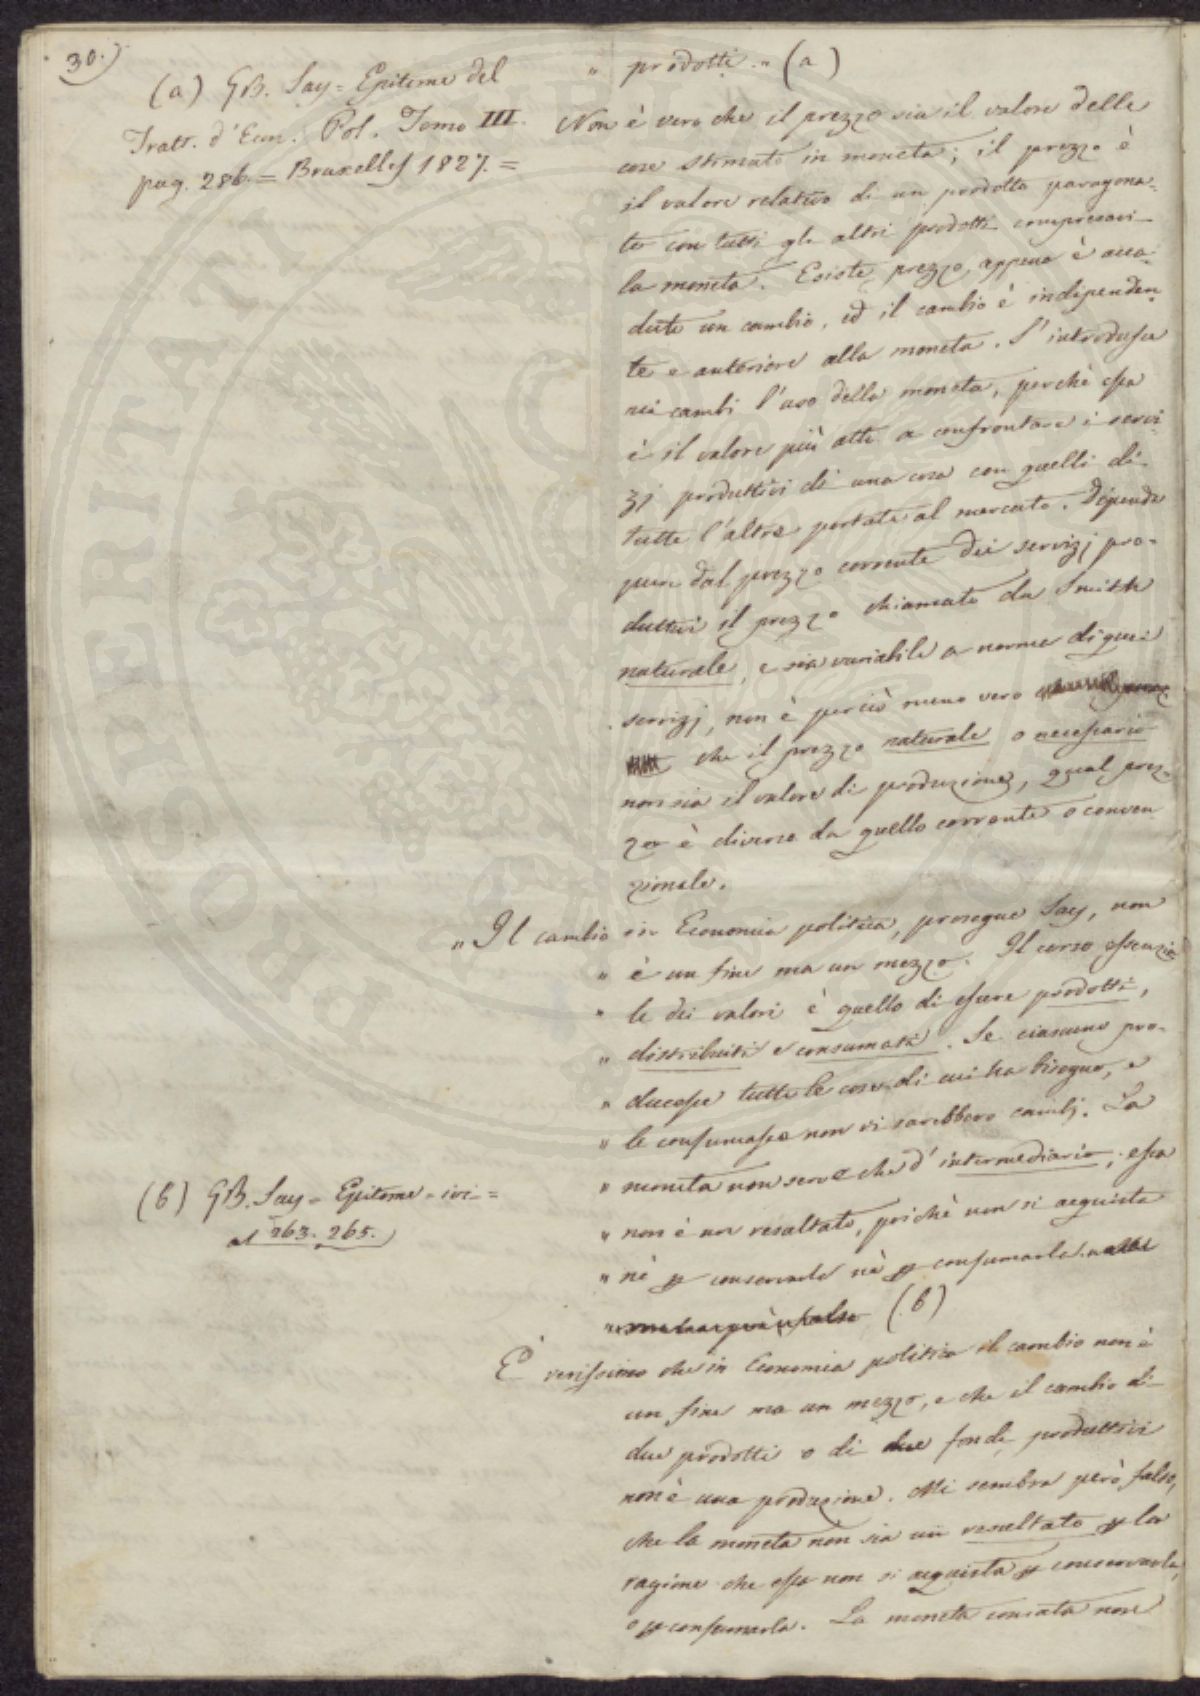 30.)
(a) GB. Say = Epitome del
Tratt. d'Econ. Pol. Tomo III.
pag. 286. = Bruxelles 1827. =
" prodotti. " (a)
Non è vero che il prezzo sia il valore delle
cose stimate in moneta; il prezzo è
il valore relativo di un prodotto paragona-
to con tutti gli altri prodotti compresavi
la moneta. Esiste prezzo appena è acca-
duto un cambio, ed il cambio è indipenden-
te e anteriore alla moneta. S'introdusse
nei cambi l'uso della moneta, perchè essa
è il valore più atto a confrontare i servi-
zj produttivi di una cosa con quelli di
tutte l'altre portate al mercato. Dipenda
pure dal prezzo corrente dei servizj pro-
duttivi il prezzo chiamato da Smith
naturale, e sia variabile a norma di quei
servizj, non è perciò meno vero
che il prezzo naturale o necessario
non sia il valore di produzione, qual prez-
zo è diverso da quello corrente o conven-
zionale.
" Il cambio in Economia politica, prosegue Say, non
" è un fine ma un mezzo. Il corso essenzia-
" le dei valori è quello di essere prodotti,
" distribuiti e consumati. Se ciascuno pro-
" ducesse tutte le cose di cui ha bisogno, e
" le consumasse non vi sarebbero cambj. La
" moneta non serve che d'intermediario; essa
" non è un resultato, poichè non si acquista
" nè p conservarla nè p consumarla.
(b)
(b) GB. Say = Epitome = ivi =
al 263. 265.
È verissimo che in Economia politica il cambio non è
un fine ma un mezzo, e che il cambio di
due prodotti o di due fondi produttivi
non è una produzione. Mi sembra però falso,
che la moneta non sia un resultato p la
ragione che essa non si acquista p conservarla,
o p consumarla. La moneta coniata non